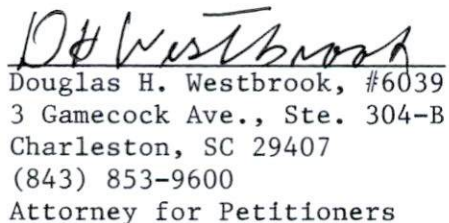 DH Westbrook
Douglas H. Westbrook, #6039
3 Gamecock Ave., Ste. 304-B
Charleston, SC 29407
(843) 853-9600
Attorney for Petitioners